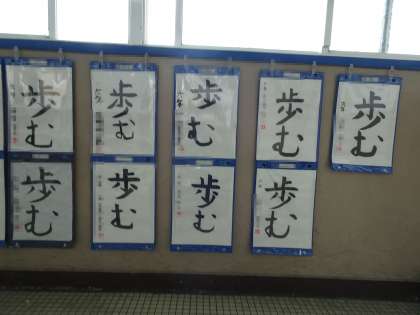 歩む
歩む
歩む
歩む
歩む
歩む
歩む
歩む
歩む